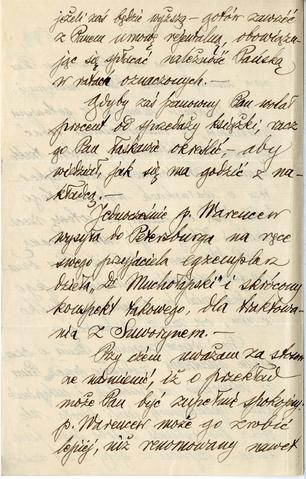 jeżeli zaś będzie wyższą – gotów zawrzeć
z Panem umowę regularną, obowiązu-
jąc się spłacać należność Pańską
w ratach oznaczonych. –
Gdyby zaś szanowny Pan wolał
procent od sprzedaży książki, racz
go Pan łaskawie określić – aby
wiedział, jak się ma godzić z na-
kładcą. –
Jednocześnie p. Warencew
wysyła do Petersburga na ręce
swego przyjaciela egzemplarz
dzieła, „Dr Muchołapski" i skrócony
konspekt takowego, dla traktowa-
nia z Suworynem. –
Przy czem uważam za stosow-
ne namienić, iż o przekład
może Pan być zupełnie spokojny.
p. Warencew może go zrobić
lepiej, niż renomowany nawet